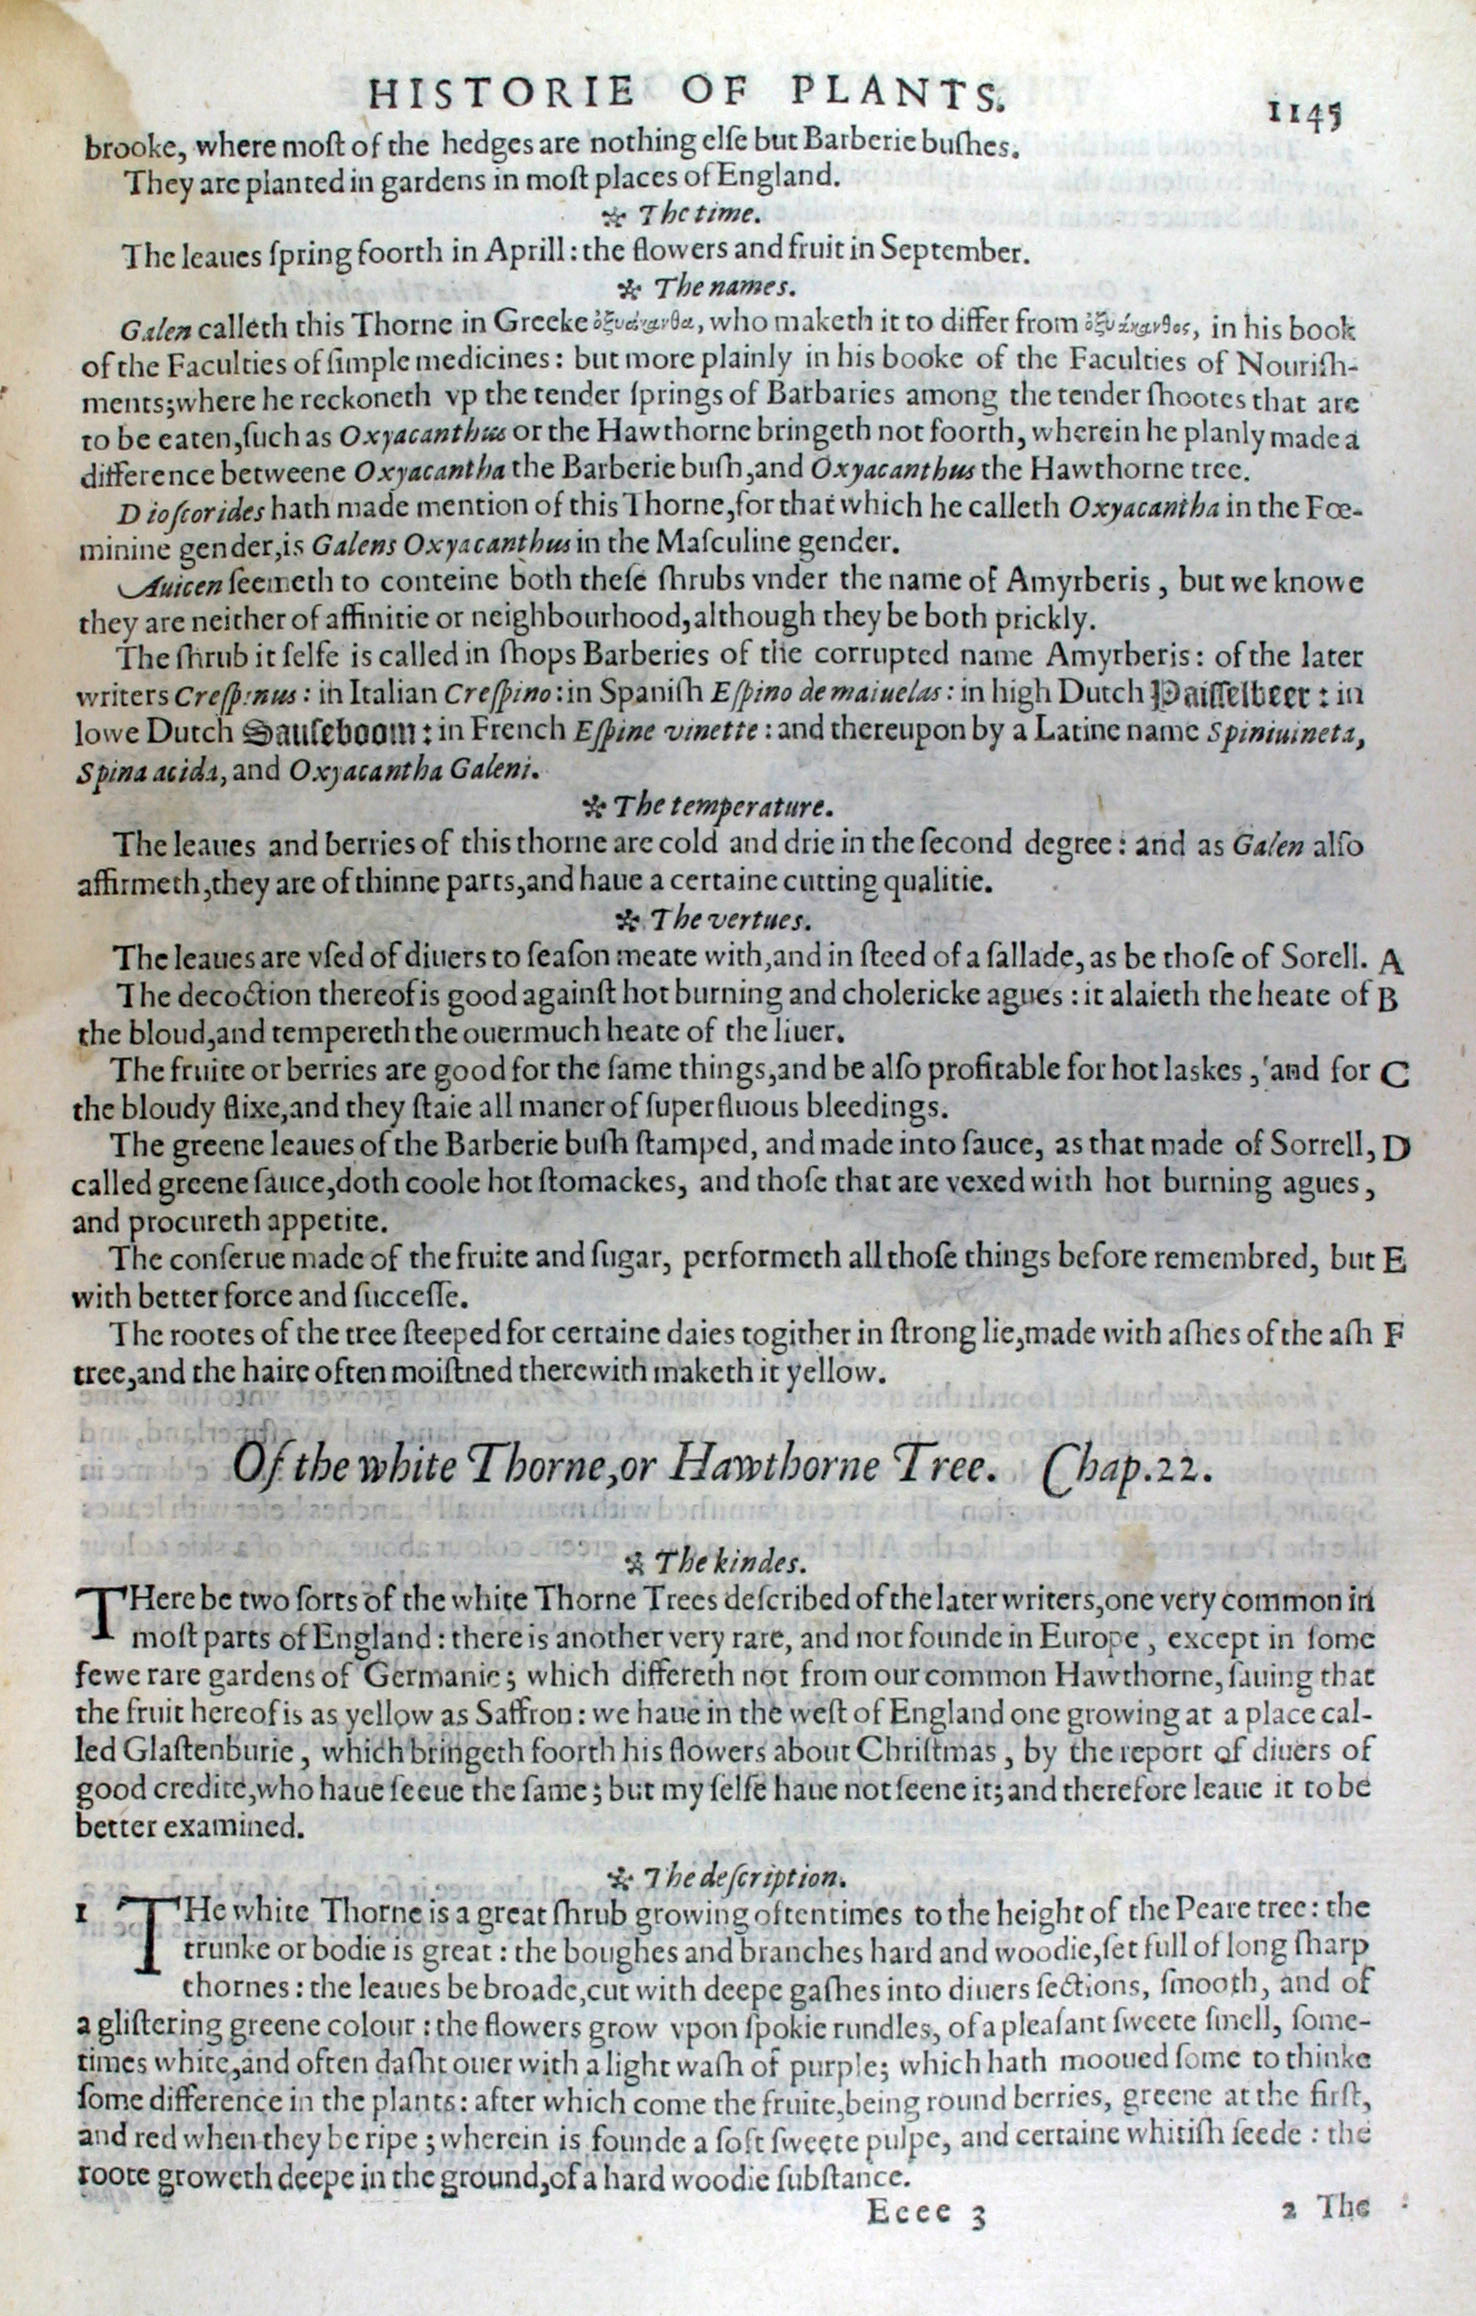 HISTORIE OF PLANTS. 1145
brooke, where moſt of the hedges are nothing elſe but Barberie buſhes.
They are planted in gardens in moſt places of England.
✲ The time.
The leaues ſpring foorth in Aprill: the flowers and fruit in September.
✲ The names.
Galen calleth this Thorne in Greeke ὀξυάκανθα, who maketh it to differ from ὀξυάκανθος, in his book
of the Faculties of ſimple medicines: but more plainly in his booke of the Faculties of Nouriſh-
ments; where he reckoneth vp the tender ſprings of Barbaries among the tender ſhootes that are
to be eaten, ſuch as Oxyacanthus or the Hawthorne bringeth not foorth, wherein he planly made a
difference betweene Oxyacantha the Barberie buſh, and Oxyacanthus the Hawthorne tree.
Dioſcorides hath made mention of this Thorne, for that which he calleth Oxyacantha in the Fœ-
minine gender, is Galens Oxyacanthus in the Maſculine gender.
Auicen ſeemeth to conteine both theſe ſhrubs vnder the name of Amyrberis, but we knowe
they are neither of affinitie or neighbourhood, although they be both prickly.
The ſhrub it ſelfe is called in ſhops Barberies of the corrupted name Amyrberis: of the later
writers Creſpinus: in Italian Creſpino: in Spaniſh Eſpino de maiuelas: in high Dutch Paiſſelbeer: in
lowe Dutch Sauſeboom: in French Eſpine vinette: and thereupon by a Latine name Spiniuineta,
Spina acida, and Oxyacantha Galeni.
✲ The temperature.
The leaues and berries of this thorne are cold and drie in the ſecond degree: and as Galen alſo
affirmeth, they are of thinne parts, and haue a certaine cutting qualitie.
✲ The vertues.
The leaues are vſed of diuers to ſeaſon meate with, and in ſteed of a ſallade, as be thoſe of Sorell. A
The decoction thereof is good againſt hot burning and cholericke agues: it alaieth the heate of B
the bloud, and tempereth the ouermuch heate of the liuer.
The fruite or berries are good for the ſame things, and be alſo profitable for hot laskes, and for C
the bloudy flixe, and they ſtaie all maner of ſuperfluous bleedings.
The greene leaues of the Barberie buſh ſtamped, and made into ſauce, as that made of Sorrell, D
called greene ſauce, doth coole hot ſtomackes, and thoſe that are vexed with hot burning agues,
and procureth appetite.
The conſerue made of the fruite and ſugar, performeth all thoſe things before remembred, but E
with better force and ſucceſſe.
The rootes of the tree ſteeped for certaine daies togither in ſtrong lie, made with aſhes of the aſh F
tree, and the haire often moiſtned therewith maketh it yellow.
Of the white Thorne, or Hawthorne Tree. Chap.22.
✲ The kindes.
THere be two ſorts of the white Thorne Trees deſcribed of the later writers, one very common in
moſt parts of England: there is another very rare, and not founde in Europe, except in ſome
fewe rare gardens of Germanie; which differeth not from our common Hawthorne, ſauing that
the fruit hereof is as yellow as Saffron: we haue in the weſt of England one growing at a place cal-
led Glaſtenburie, which bringeth foorth his flowers about Chriſtmas, by the report of diuers of
good credite, who haue ſeeue the ſame; but my ſelfe haue not ſeene it; and therefore leaue it to be
better examined.
✲ The deſcription.
1 THe white Thorne is a great ſhrub growing oftentimes to the height of the Peare tree: the
trunke or bodie is great: the boughes and branches hard and woodie, ſet full of long ſharp
thornes: the leaues be broade, cut with deepe gaſhes into diuers ſections, ſmooth, and of
a gliſtering greene colour: the flowers grow vpon ſpokie rundles, of a pleaſant ſweete ſmell, ſome-
times white, and often daſht ouer with a light waſh of purple; which hath mooued ſome to thinke
ſome difference in the plants: after which come the fruite, being round berries, greene at the firſt,
and red when they be ripe; wherein is founde a ſoft ſweete pulpe, and certaine whitiſh ſeede: the
roote groweth deepe in the ground, of a hard woodie ſubſtance.
Eeee 3 2 The